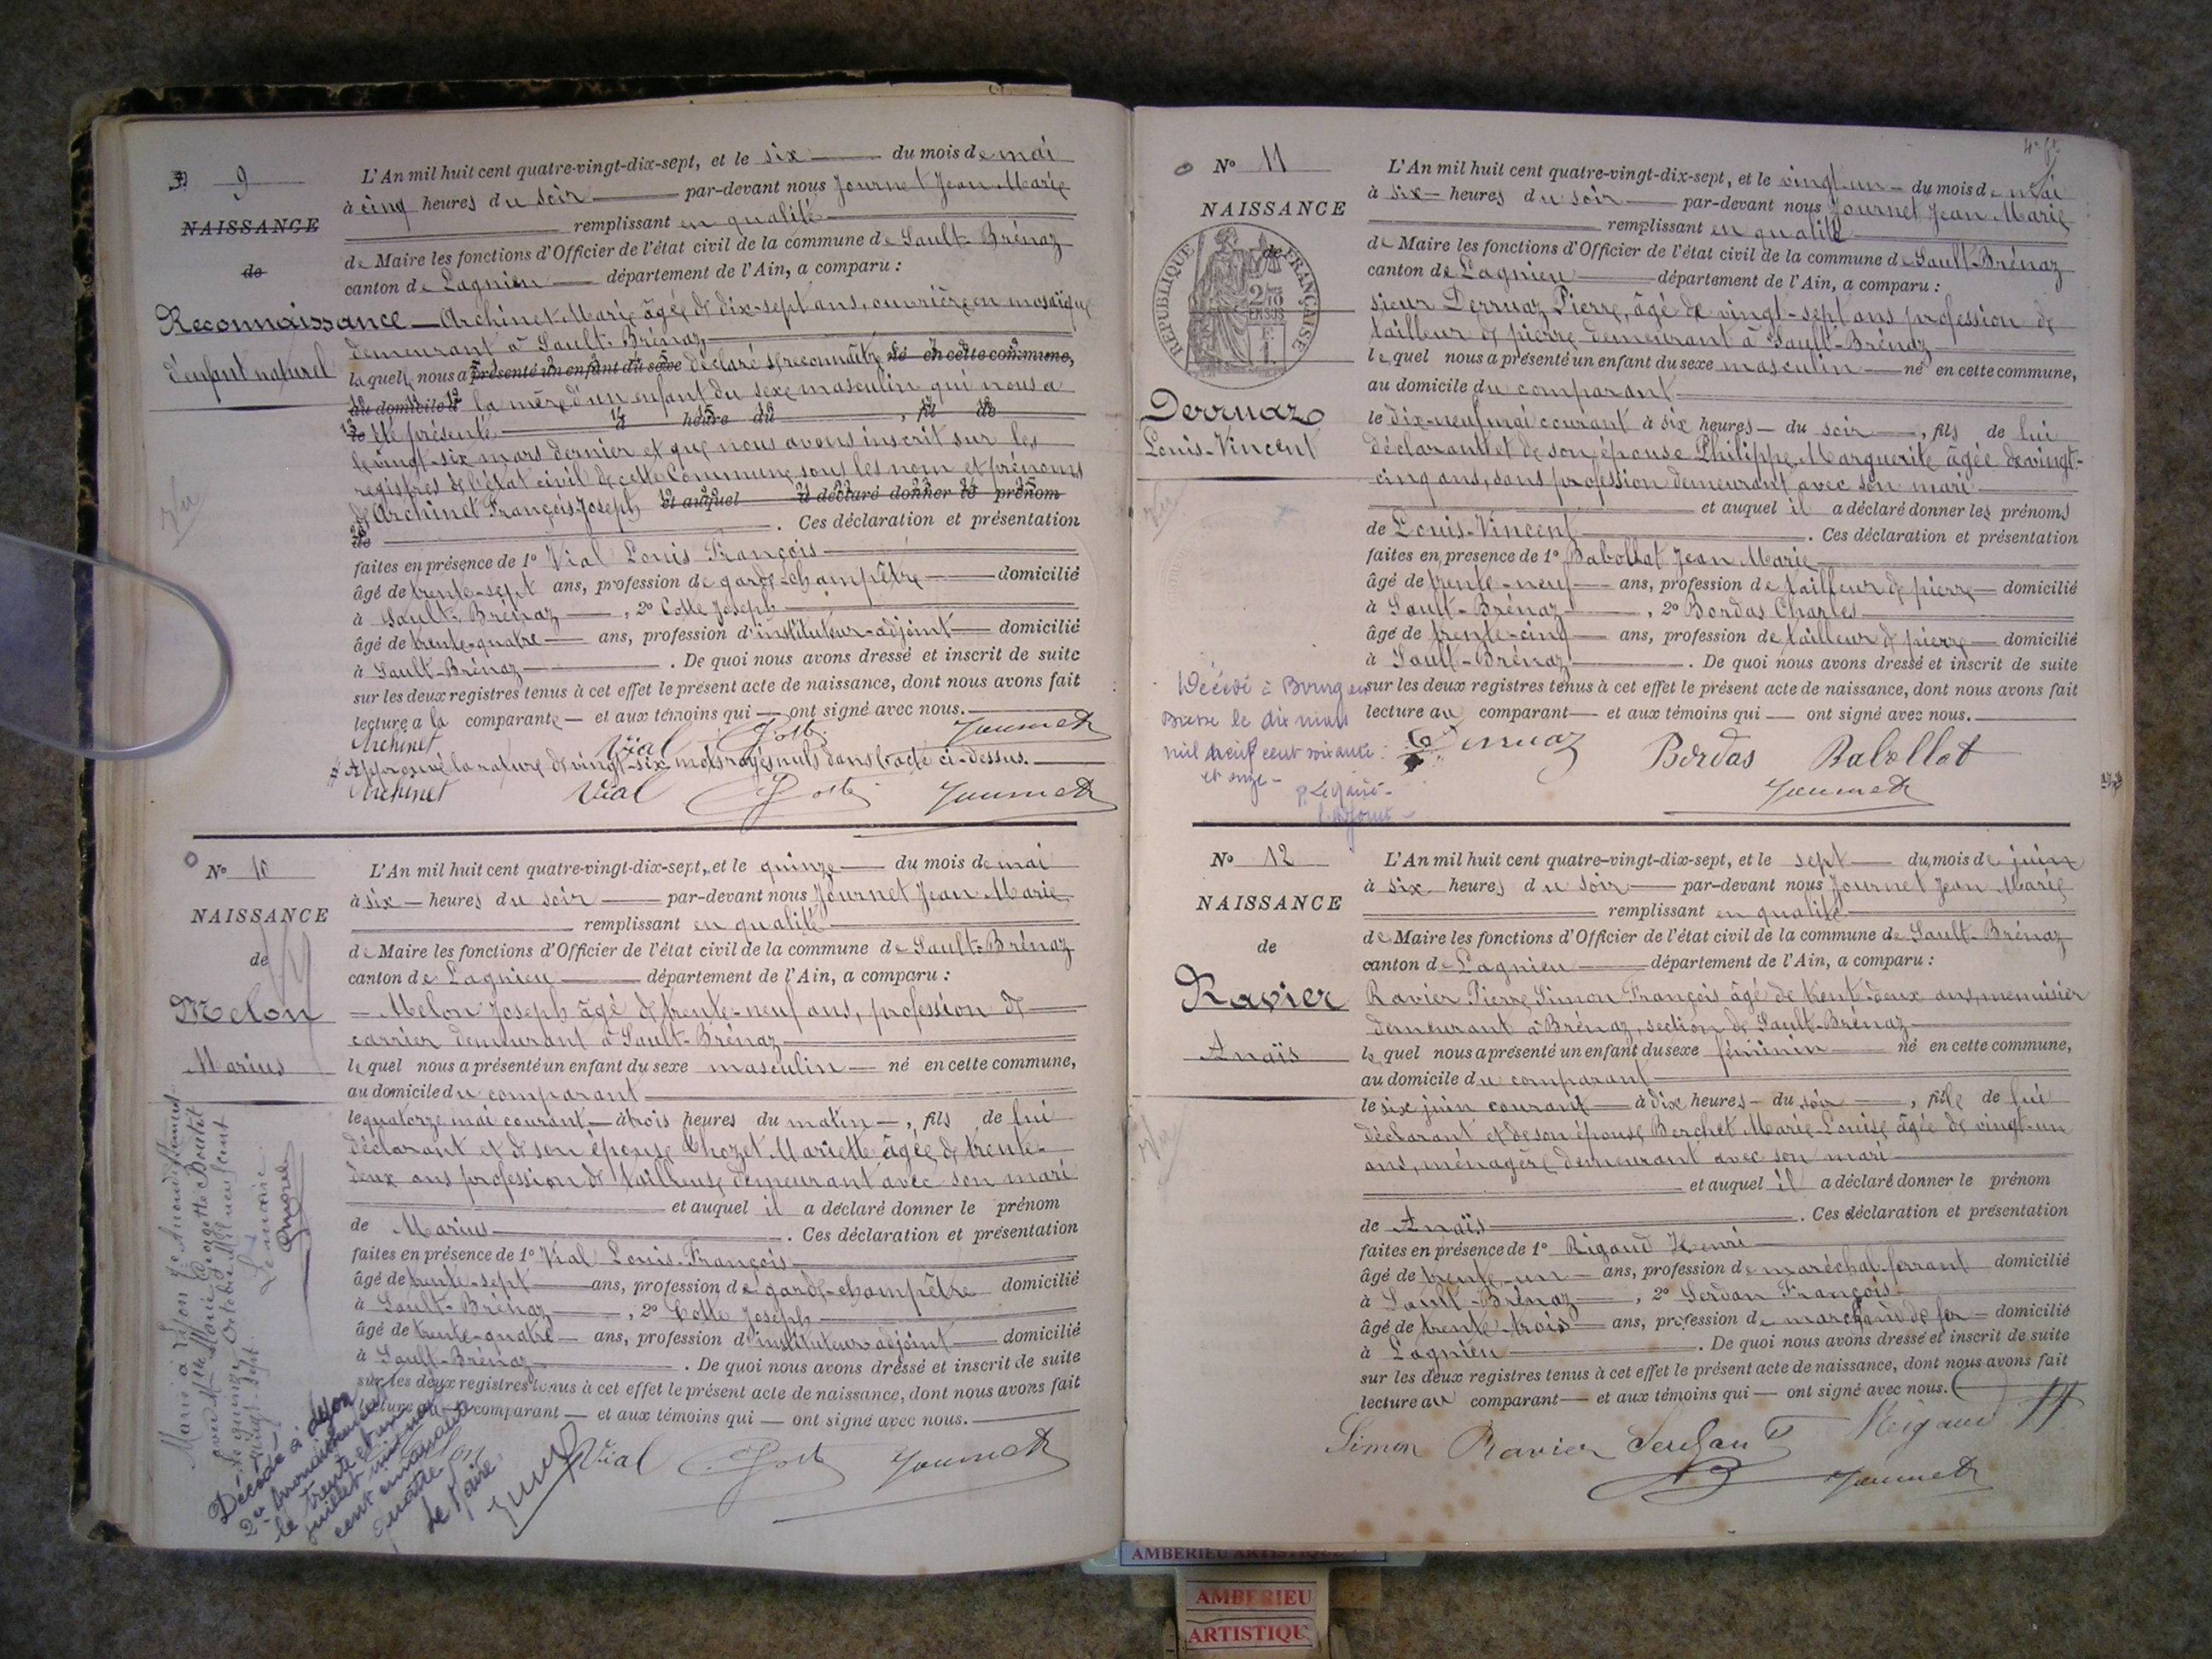 9
L'An mil huit cent quatre-vingt-dix-sept, et le six du mois de mai
à cinq heures du soir par-devant nous Journet Jean Marie
NAISSANCE
remplissant en qualité
de Maire les fonctions d'Officier de l'état civil de la commune de Sault-Brénaz
de
canton de Lagnieu département de l'Ain, a comparu :
Reconnaissance
Archinet Marie âgée de dix-sept ans, ouvrière en mosaïque
demeurant à Sault-Brénaz
d'enfant naturel
laquelle nous a présenté un enfant du sexe déclaré se reconnaître né en cette commune,
au domicile d la mère d'un enfant du sexe masculin qui nous a
été présenté à heure du , fil de
le vingt-six mars dernier et que nous avons inscrit sur les
registres de l'état civil de cette Commune sous les nom et prénoms
de Archinet François Joseph et auquel a déclaré donner le prénom
de . Ces déclaration et présentation
faites en présence de 1° Vial Louis François
âgé de trente-sept ans, profession de garde-champêtre domicilié
à Sault-Brénaz , 2° Cotte Joseph
âgé de trente-quatre ans, profession d'instituteur-adjoint domicilié
à Sault-Brénaz . De quoi nous avons dressé et inscrit de suite
sur les deux registres tenus à cet effet le présent acte de naissance, dont nous avons fait
lecture a la comparante et aux témoins qui ont signé avec nous.
Archinet Vial Journet
Approuvé la rature de vingt-six mots rayés nuls dans l'acte ci-dessus.
Archinet Vial Journet
N° 10
L'An mil huit cent quatre-vingt-dix-sept, et le quinze du mois de mai
à six heures du soir par-devant nous Journet Jean Marie
NAISSANCE
remplissant en qualité
de
de Maire les fonctions d'Officier de l'état civil de la commune de Sault-Brénaz
canton de Lagnieu département de l'Ain, a comparu :
Melon
Melon Joseph âgé de trente-neuf ans, profession de
carrier demeurant à Sault-Brénaz
Marius
lequel nous a présenté un enfant du sexe masculin né en cette commune,
au domicile du comparant
le quatorze mai courant à trois heures du matin , fils de lui
déclarant et de son épouse Chozet Mariette âgée de trente-
deux ans profession de tailleuse demeurant avec son mari
et auquel il a déclaré donner le prénom
de Marius . Ces déclaration et présentation
faites en présence de 1° Vial Louis François
âgé de trente-sept ans, profession de garde-champêtre domicilié
à Sault-Brénaz , 2° Cotte Joseph
âgé de trente-quatre ans, profession d'instituteur-adjoint domicilié
à Sault-Brénaz . De quoi nous avons dressé et inscrit de suite
sur les deux registres tenus à cet effet le présent acte de naissance, dont nous avons fait
lecture au comparant et aux témoins qui ont signé avec nous.
Vial Journet
Marié à Lyon
Marie Georgette
le quinze Octobre Mil neuf cent
vingt sept.
Le maire
Décédé à Lyon
2e arrondissement
le trente et un
juillet mil neuf
cent cinquante
quatre
Le Maire
N° 11
L'An mil huit cent quatre-vingt-dix-sept, et le vingt-un du mois de mai
à six heures du soir par-devant nous Journet Jean Marie
NAISSANCE
remplissant en qualité
de
de Maire les fonctions d'Officier de l'état civil de la commune de Sault-Brénaz
canton de Lagnieu département de l'Ain, a comparu :
RÉPUBLIQUE FRANÇAISE
sieur Derruaz Pierre, âgé de vingt-sept ans profession de
tailleur de pierre demeurant à Sault-Brénaz
lequel nous a présenté un enfant du sexe masculin né en cette commune,
au domicile du comparant
Derruaz
Louis-Vincent
le dix-neuf mai courant à six heures du soir , fils de lui
déclarant et de son épouse Philippe Marguerite âgée de vingt-
cinq ans, sans profession demeurant avec son mari
et auquel il a déclaré donner les prénoms
de Louis-Vincent . Ces déclaration et présentation
faites en présence de 1° Babollat Jean Marie
âgé de trente-neuf ans, profession de tailleur de pierre domicilié
à Sault-Brénaz , 2° Bordas Charles
âgé de trente-cinq ans, profession de tailleur de pierre domicilié
à Sault-Brénaz . De quoi nous avons dressé et inscrit de suite
sur les deux registres tenus à cet effet le présent acte de naissance, dont nous avons fait
lecture au comparant et aux témoins qui ont signé avec nous.
Décédé à Bourg en
Bresse le dix mars
mil neuf cent soixante
et onze
Derruaz Bordas Babollat
Journet
N° 12
L'An mil huit cent quatre-vingt-dix-sept, et le sept du mois de juin
à six heures du soir par-devant nous Journet Jean Marie
NAISSANCE
remplissant en qualité
de
de Maire les fonctions d'Officier de l'état civil de la commune de Sault-Brénaz
canton de Lagnieu département de l'Ain, a comparu :
Ravier
Ravier Pierre Simon François âgé de trente-deux ans, menuisier
demeurant à Brénaz, section de Sault-Brénaz
Anaïs
lequel nous a présenté un enfant du sexe féminin né en cette commune,
au domicile du comparant
le six juin courant à dix heures du soir , fille de lui
déclarant et de son épouse Berchet Marie-Louise âgée de vingt-un
ans, ménagère demeurant avec son mari
et auquel il a déclaré donner le prénom
de Anaïs . Ces déclaration et présentation
faites en présence de 1° Rigaud Henri
âgé de trente-un ans, profession de maréchal-ferrant domicilié
à Sault-Brénaz , 2° Serdan François
âgé de trente-trois ans, profession de marchand de fer domicilié
à Lagnieu . De quoi nous avons dressé et inscrit de suite
sur les deux registres tenus à cet effet le présent acte de naissance, dont nous avons fait
lecture au comparant et aux témoins qui ont signé avec nous.
Simon Ravier Rigaud H
Journet
AMBERIEU ARTISTIQUE
AMBERIEU
ARTISTIQU